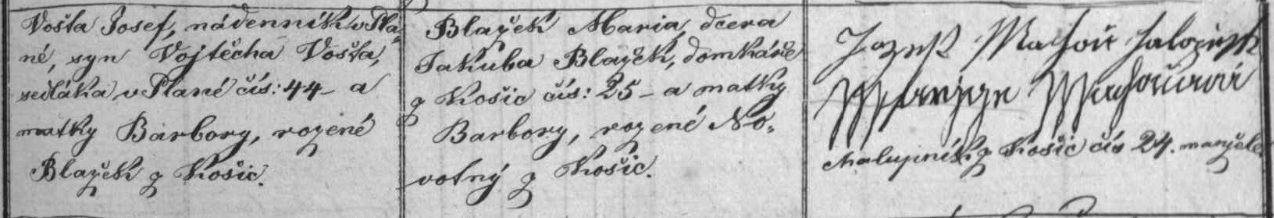 Vošta Josef, nádenník v Pla-
né, syn Vojtěcha Vošta,
sedláka v Plané čís: 44 - a
matky Barbory, rozené
Blažek z Košic.
Blažek Maria, dcera
Jakuba Blažek, domkáře
z Košic čís: 25 - a matky
Barbory, rozené No-
votný z Košic.
Jozef Machoň
Machoňová
chalupník z Košic čís 24. manžele